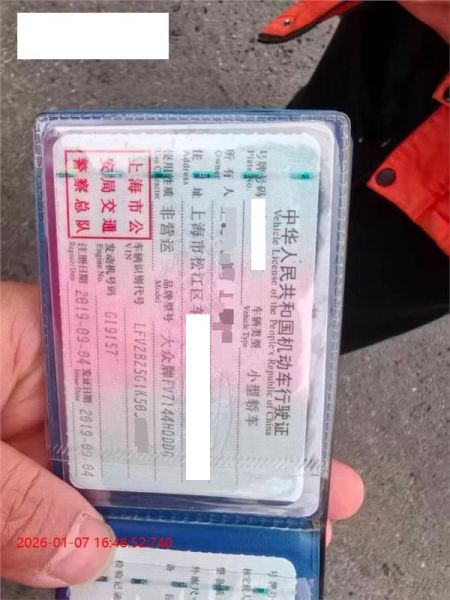 中华人民共和国机动车行驶证
Vehicle License of the People's Republic of China
号牌号码
Plate No.
车辆类型 小型轿车
Vehicle Type
所有人
Owner
住址 上海市松江区
Address
使用性质 非营运
Use Character
品牌型号 大众牌FV7144HDDDG
Model
上海市公
安局交通
警察总队
车辆识别代号 LFV2B25G1K50
VIN
发动机号码 G19157
Engine No.
注册日期 2019-09-04
Register Date
发证日期 2019-09-04
Issue Date
检验记录
2026-01-07 16:48:52.740